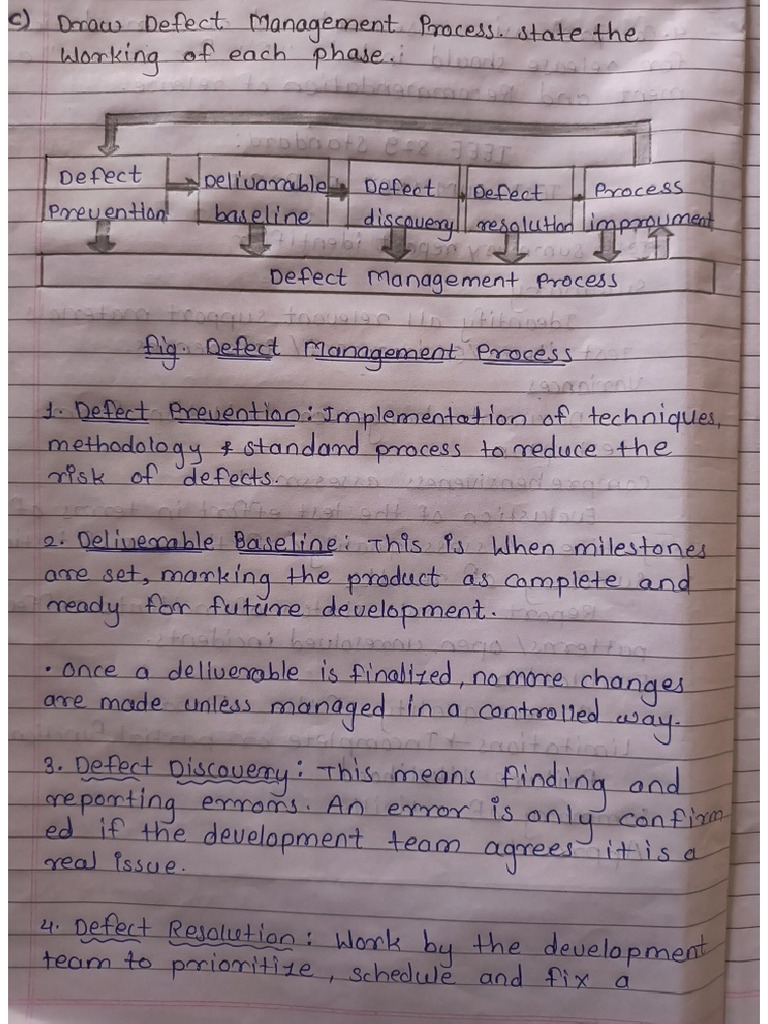 c) Draw Defect Management Process. state the
Working of each phase.
Defect Prevention
Delivarable baseline
Defect discovery
Defect resolution
Process improvment
Defect Management Process
fig. Defect Management Process
1. Defect Prevention: Implementation of techniques,
methodology & standard process to reduce the
risk of defects.
2. Deliverable Baseline: This is When milestones
are set, marking the product as complete and
ready for future development.
• once a deliverable is finalized, no more changes
are made unless managed in a controlled way.
3. Defect Discovery: This means finding and
reporting errors. An error is only confirm
ed if the development team agrees it is a
real issue.
4. Defect Resolution: Work by the development
team to prioritize, schedule and fix a